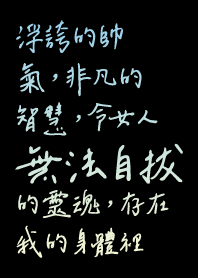 浮誇的帥
氣，非凡的
智慧，令女人
無法自拔
的靈魂，存在
我的身體裡